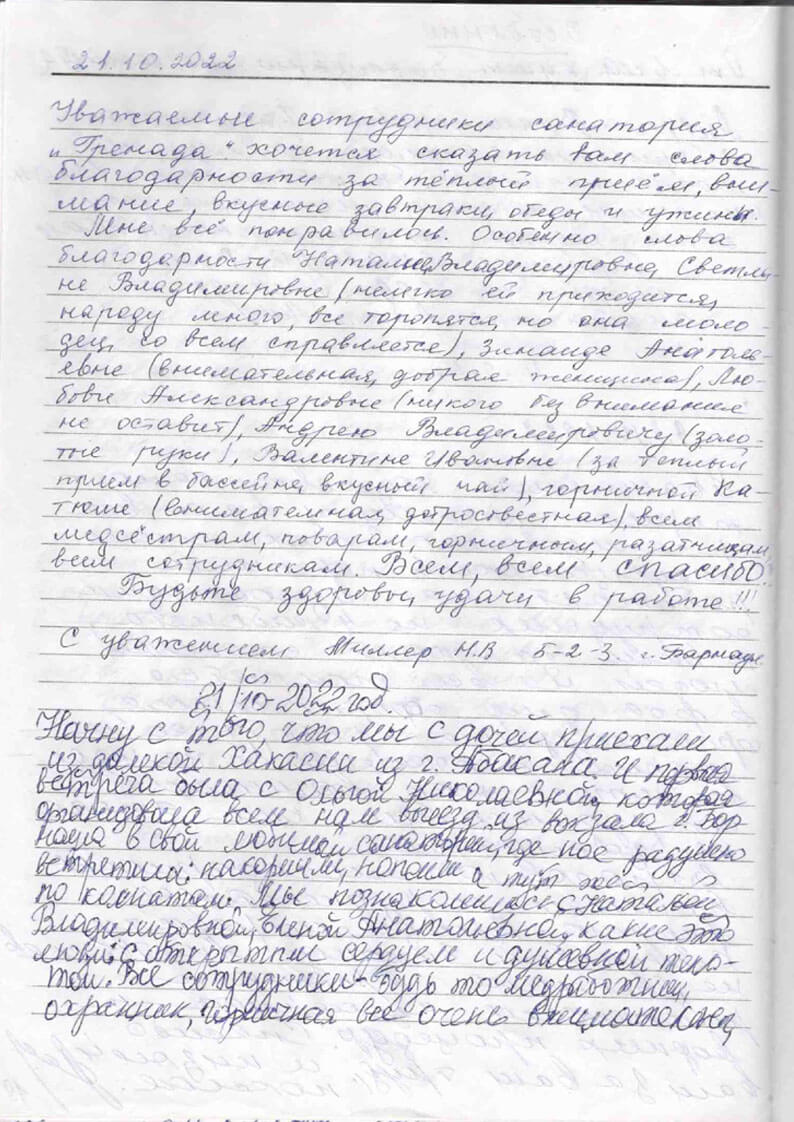 21.10.2022
Уважаемые сотрудники санатория
"Гренада" хочется сказать вам слова
благодарности за тёплый приём, вни-
мание, вкусные завтраки, обеды и ужины.
Мне всё понравилось. Особенно слова
благодарности Наталье Владимировне, Светла-
не Владимировне (нелегко ей приходится,
народу много, все торопятся, но она моло-
дец, со всем справляется), Зинаиде Анатоль-
евне (внимательная, добрая женщина), Лю-
бови Александровне (никого без внимания
не оставит), Андрею Владимировичу (золо-
тые руки), Валентине Ивановне (за тёплый
прием в бассейне, вкусный чай), горничной Ка-
тюше (внимательная, добросвестная), всем
медсёстрам, поварам, горничным, разатчицам,
всем сотрудникам. Всем, всем спасибо!
Будьте здоровы, удачи в работе!!!
С уважением Миллер Н.В 5-2-3. г. Барнаул
21/10-2022 год.
Начну с того, что мы с дочей приехали
из далекой Хакасии из г. Абакана. И первая
встреча была с Ольгой Николаевной, которая
организовала всем нам выезд из вокзала г. Бар
наула в свой любимый санаторий, где нас радушно
встретили: накормили, напоили и тут же
по комнатам. Мы познакомились с Натальей
Владимировной, Еленой Анатольевной, какие это
люди: с открытым сердцем и душевной тепло-
той. Все сотрудники - будь то медработник,
охранник, горничная все очень внимательны,